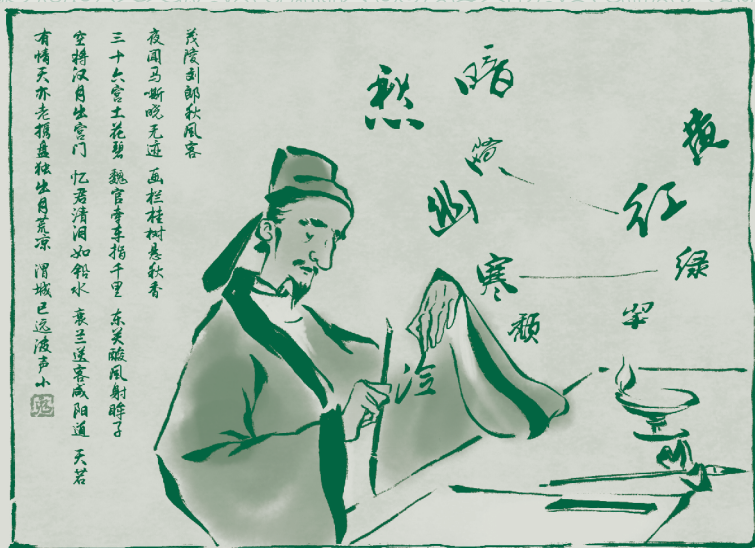 茂陵刘郎秋风客
夜闻马嘶晓无迹 画栏桂树悬秋香
三十六宫土花碧 魏官牵车指千里 东关酸风射眸子
空将汉月出宫门 忆君清泪如铅水 衰兰送客咸阳道 天若
有情天亦老携盘独出月荒凉 渭城已远波声小
愁
暗
黄
幽
红
寒
绿
颓
翠